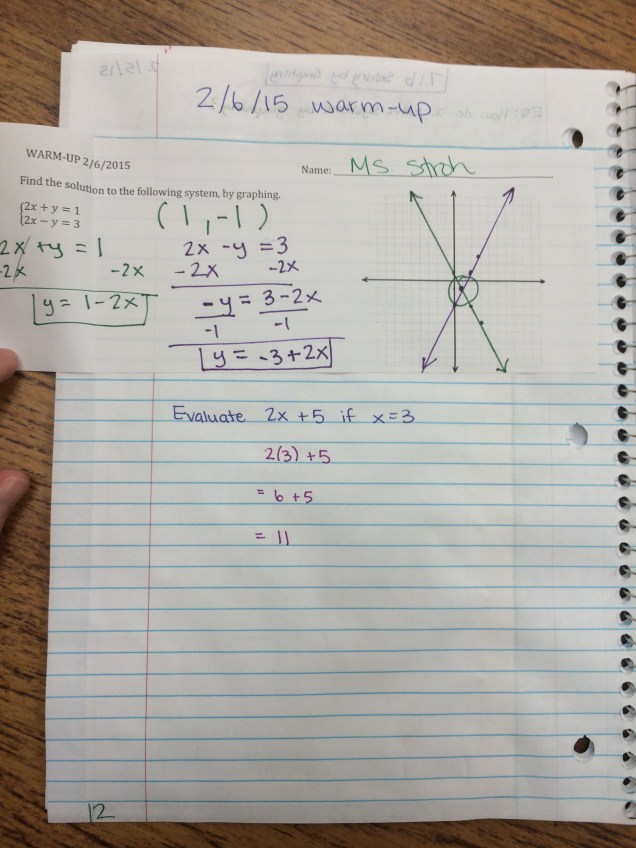 2/6/15 warm-up
WARM-UP 2/6/2015
Name: Ms Stroh
Find the solution to the following system, by graphing.
{2x + y = 1
{2x − y = 3
(1, -1)
2x + y = 1
-2x -2x
y = 1-2x
2x - y = 3
-2x -2x
-y = 3-2x
-1 -1
y = -3+2x
Evaluate 2x + 5 if x=3
2(3) +5
= 6 +5
= 11
12